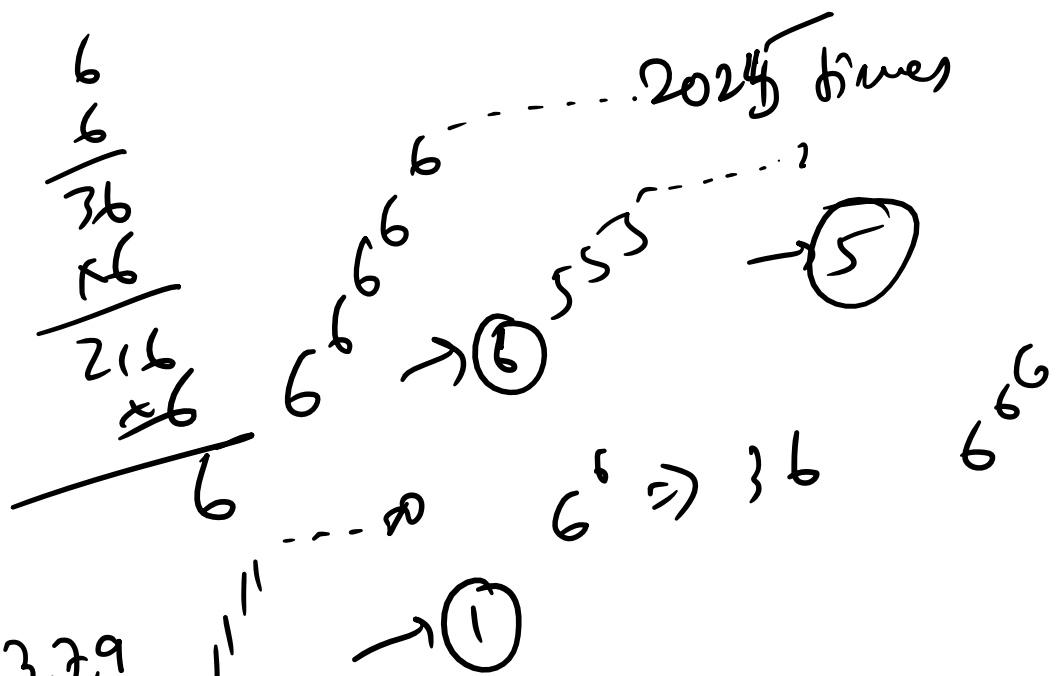 6
6
36
×6
216
×6
6
6^6^6^6^6^6 - - - - 2024 times
→ 6
5^5^5^5 - - - - ?
→ 5
6^6 => 36
6^6^6
- - - -
→ 1
3, 7, 9